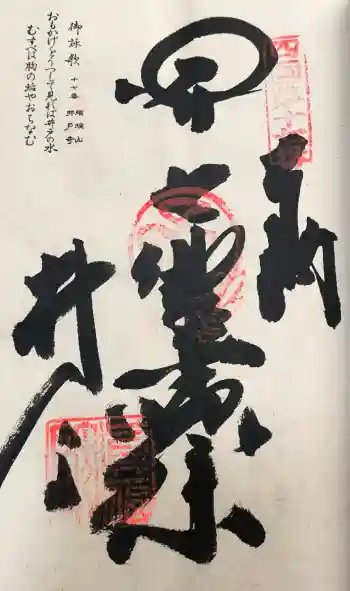 奉納
四国第十七番
七佛薬師
井戸寺
御詠歌 十七番 瑠璃山 井戸寺
おもかげをうつして見れば井戸の水
むすべば胸の垢やおちなむ